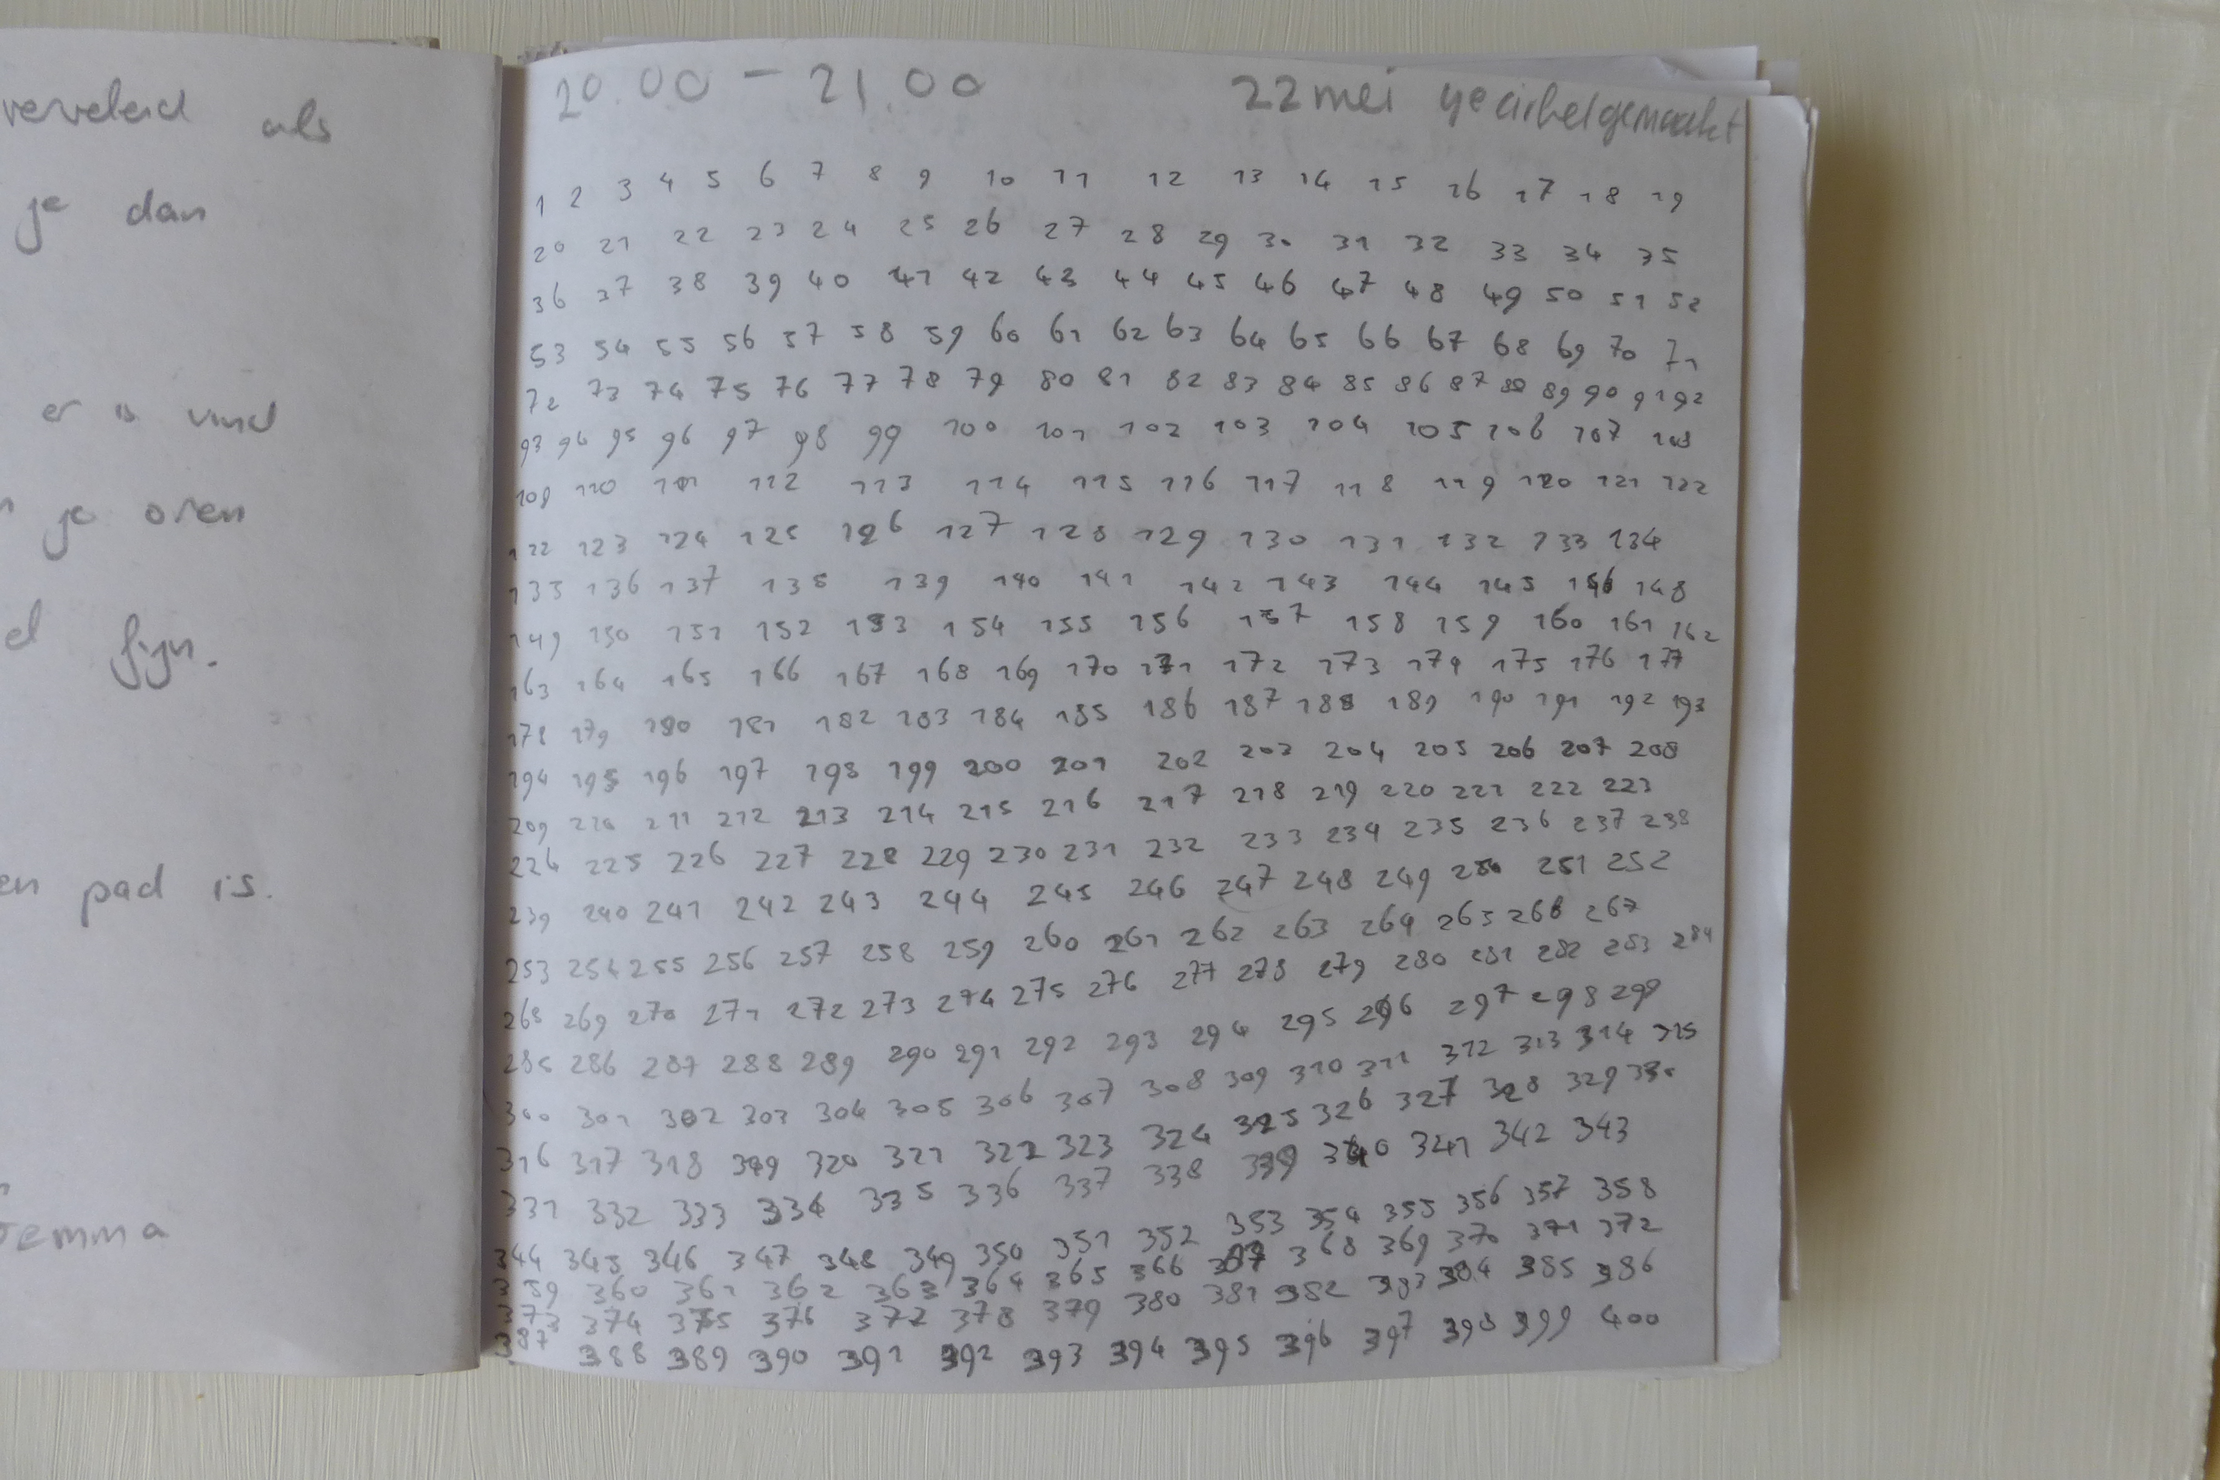 als
je dan
er is
je oren
fijn.
pad is.
20.00 - 21.00 22 mei
1 2 3 4 5 6 7 8 9 10 11 12 13 14 15 16 17 18 19
20 21 22 23 24 25 26 27 28 29 30 31 32 33 34 35
36 37 38 39 40 41 42 43 44 45 46 47 48 49 50 51 52
53 54 55 56 57 58 59 60 61 62 63 64 65 66 67 68 69 70 71
72 73 74 75 76 77 78 79 80 81 82 83 84 85 86 87 88 89 90 91 92
93 94 95 96 97 98 99 100 101 102 103 104 105 106 107 108
109 110 111 112 113 114 115 116 117 118 119 120 121 122
122 123 124 125 126 127 128 129 130 131 132 133 134
135 136 137 138 139 140 141 142 143 144 145 146 148
149 150 151 152 153 154 155 156 157 158 159 160 161 162
163 164 165 166 167 168 169 170 171 172 173 174 175 176 177
178 179 180 181 182 183 184 185 186 187 188 189 190 191 192 193
194 195 196 197 198 199 200 201 202 203 204 205 206 207 208
209 210 211 212 213 214 215 216 217 218 219 220 221 222 223
224 225 226 227 228 229 230 231 232 233 234 235 236 237 238
239 240 241 242 243 244 245 246 247 248 249 250 251 252
253 254 255 256 257 258 259 260 261 262 263 264 265 266 267
268 269 270 271 272 273 274 275 276 277 278 279 280 281 282 283 284
285 286 287 288 289 290 291 292 293 294 295 296 297 298 299
300 301 302 303 304 305 306 307 308 309 310 311 312 313 314 315
316 317 318 319 320 321 322 323 324 325 326 327 328 329 330
331 332 333 334 335 336 337 338 339 340 341 342 343
344 345 346 347 348 349 350 351 352 353 354 355 356 357 358
359 360 361 362 363 364 365 366 367 368 369 370 371 372
373 374 375 376 377 378 379 380 381 382 383 384 385 386
387 388 389 390 391 392 393 394 395 396 397 398 399 400